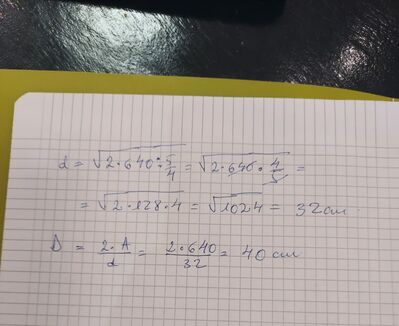 d = √2•640:5/4 = √2•640•4/5 =
= √2•128•4 = √1024 = 32cm
D = 2•A/d = 2•640/32 = 40 cm